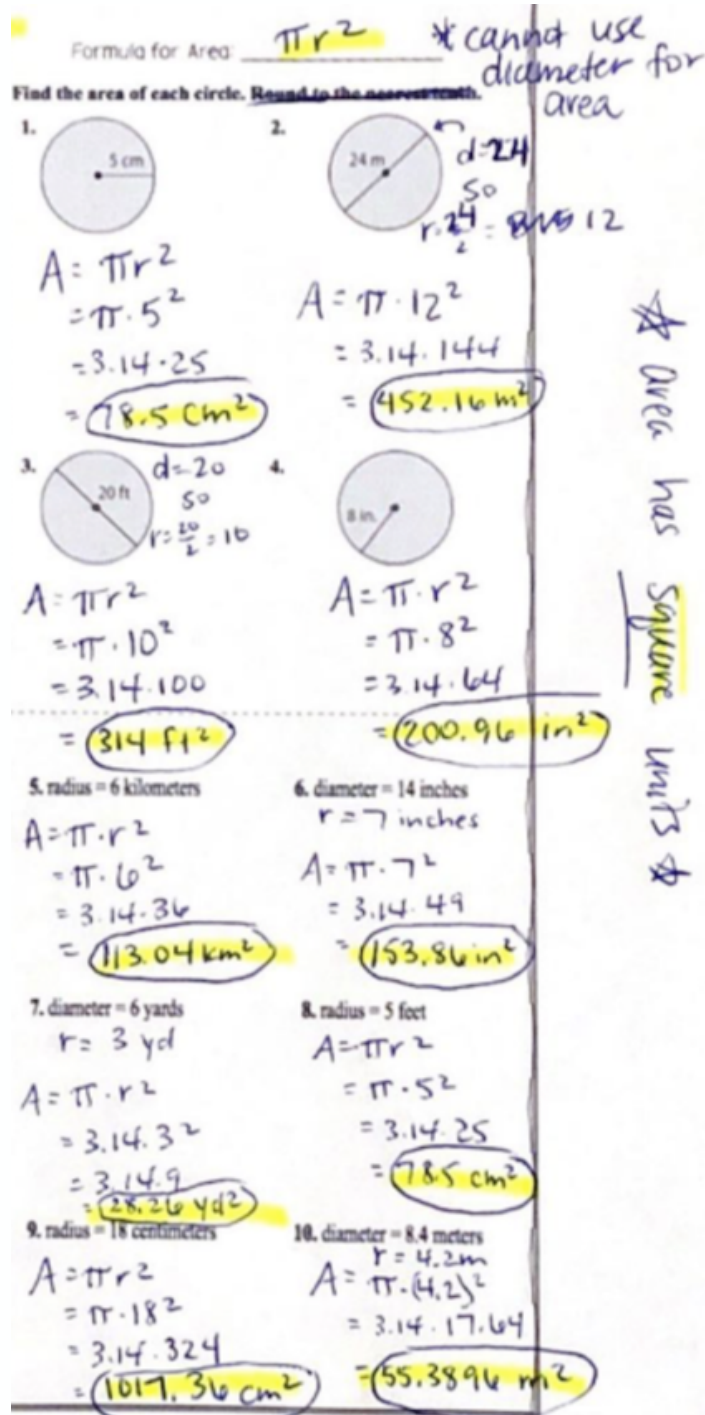 Formula for Area: πr²
* cannot use
diameter for
area
Find the area of each circle. Round to the nearest tenth.
1.
5 cm
A = πr²
= π · 5²
= 3.14 · 25
= 78.5 cm²
2.
24 m
d = 24
so
r = 24/2 = 12
A = π · 12²
= 3.14 · 144
= 452.16 m²
3.
20 ft
d = 20
so
r = 20/2 = 10
A = πr²
= π · 10²
= 3.14 · 100
= 314 ft²
4.
8 in.
A = π · r²
= π · 8²
= 3.14 · 64
= 200.96 in²
5. radius = 6 kilometers
A = π · r²
= π · 6²
= 3.14 · 36
= 113.04 km²
6. diameter = 14 inches
r = 7 inches
A = π · 7²
= 3.14 · 49
= 153.86 in²
7. diameter = 6 yards
r = 3 yd
A = π · r²
= 3.14 · 3²
= 3.14 · 9
= 28.26 yd²
8. radius = 5 feet
A = πr²
= π · 5²
= 3.14 · 25
= 78.5 cm²
9. radius = 18 centimeters
A = πr²
= π · 18²
= 3.14 · 324
= 1017.36 cm²
10. diameter = 8.4 meters
r = 4.2m
A = π · (4.2)²
= 3.14 · 17.64
= 55.3896 m²
☆ area has square units ☆